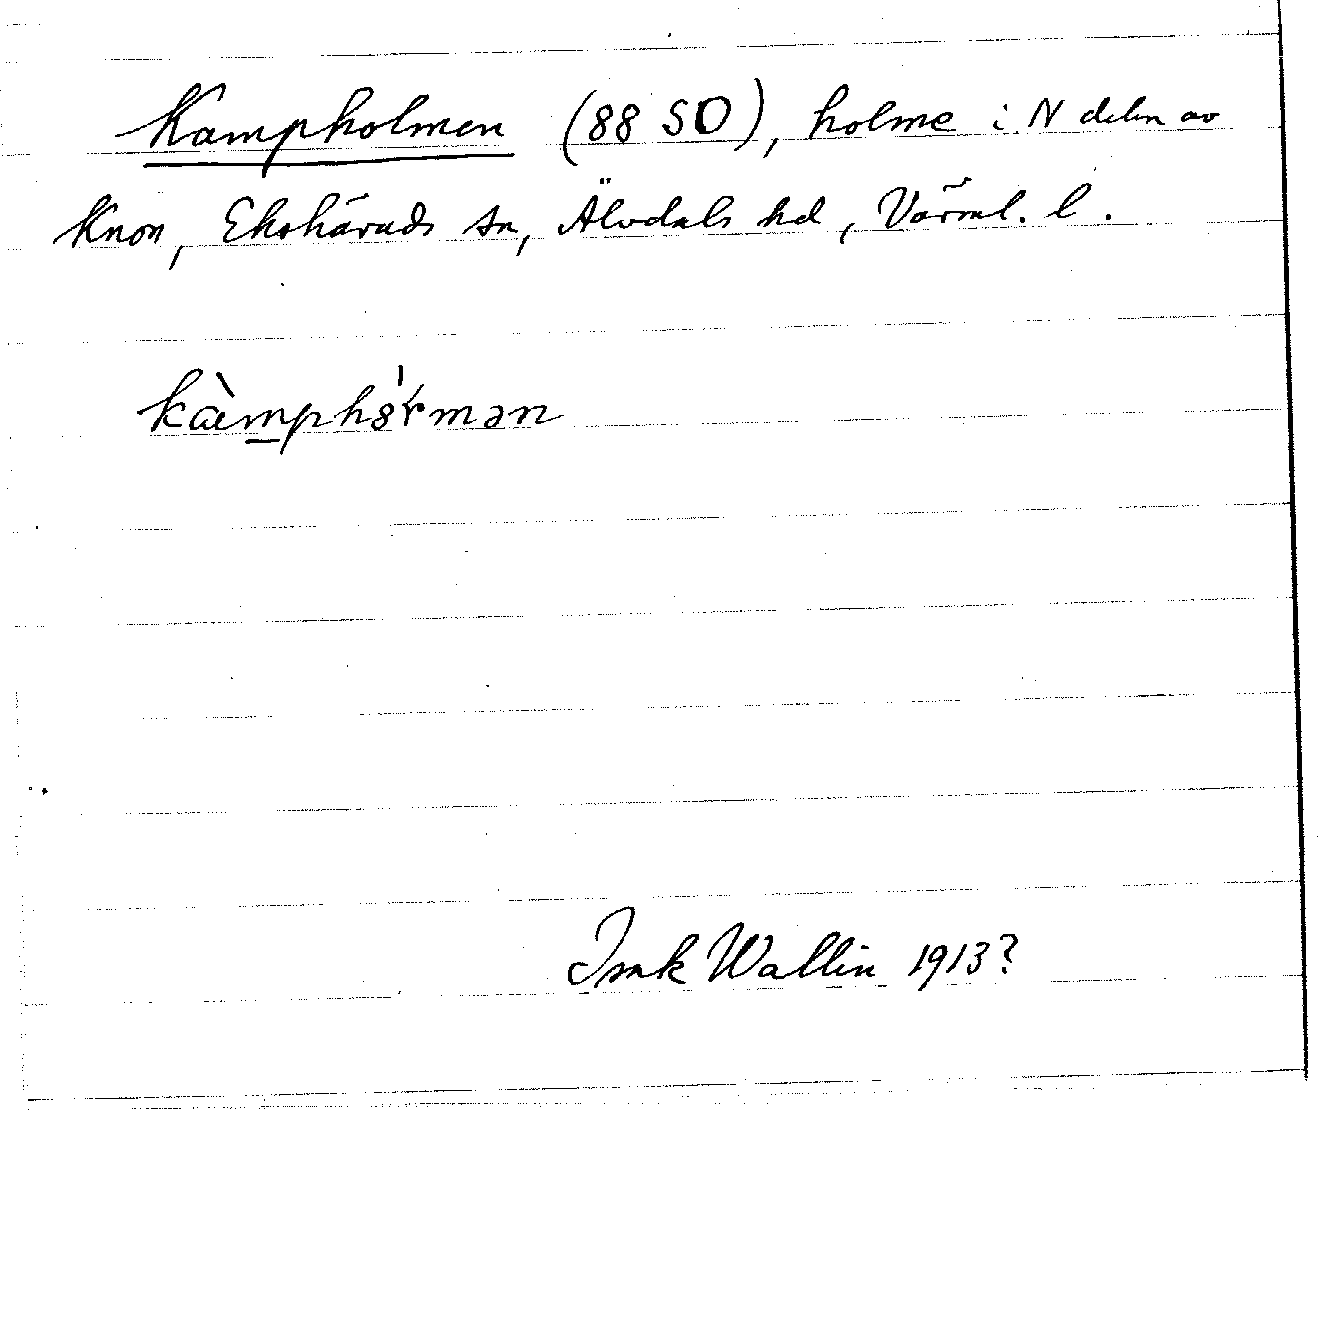 Kampholmen (88 SO), holme i N delen av
Knon, Ekshärads sn, Älvdals hd, Värml. l.
Isak Wallin 1913?